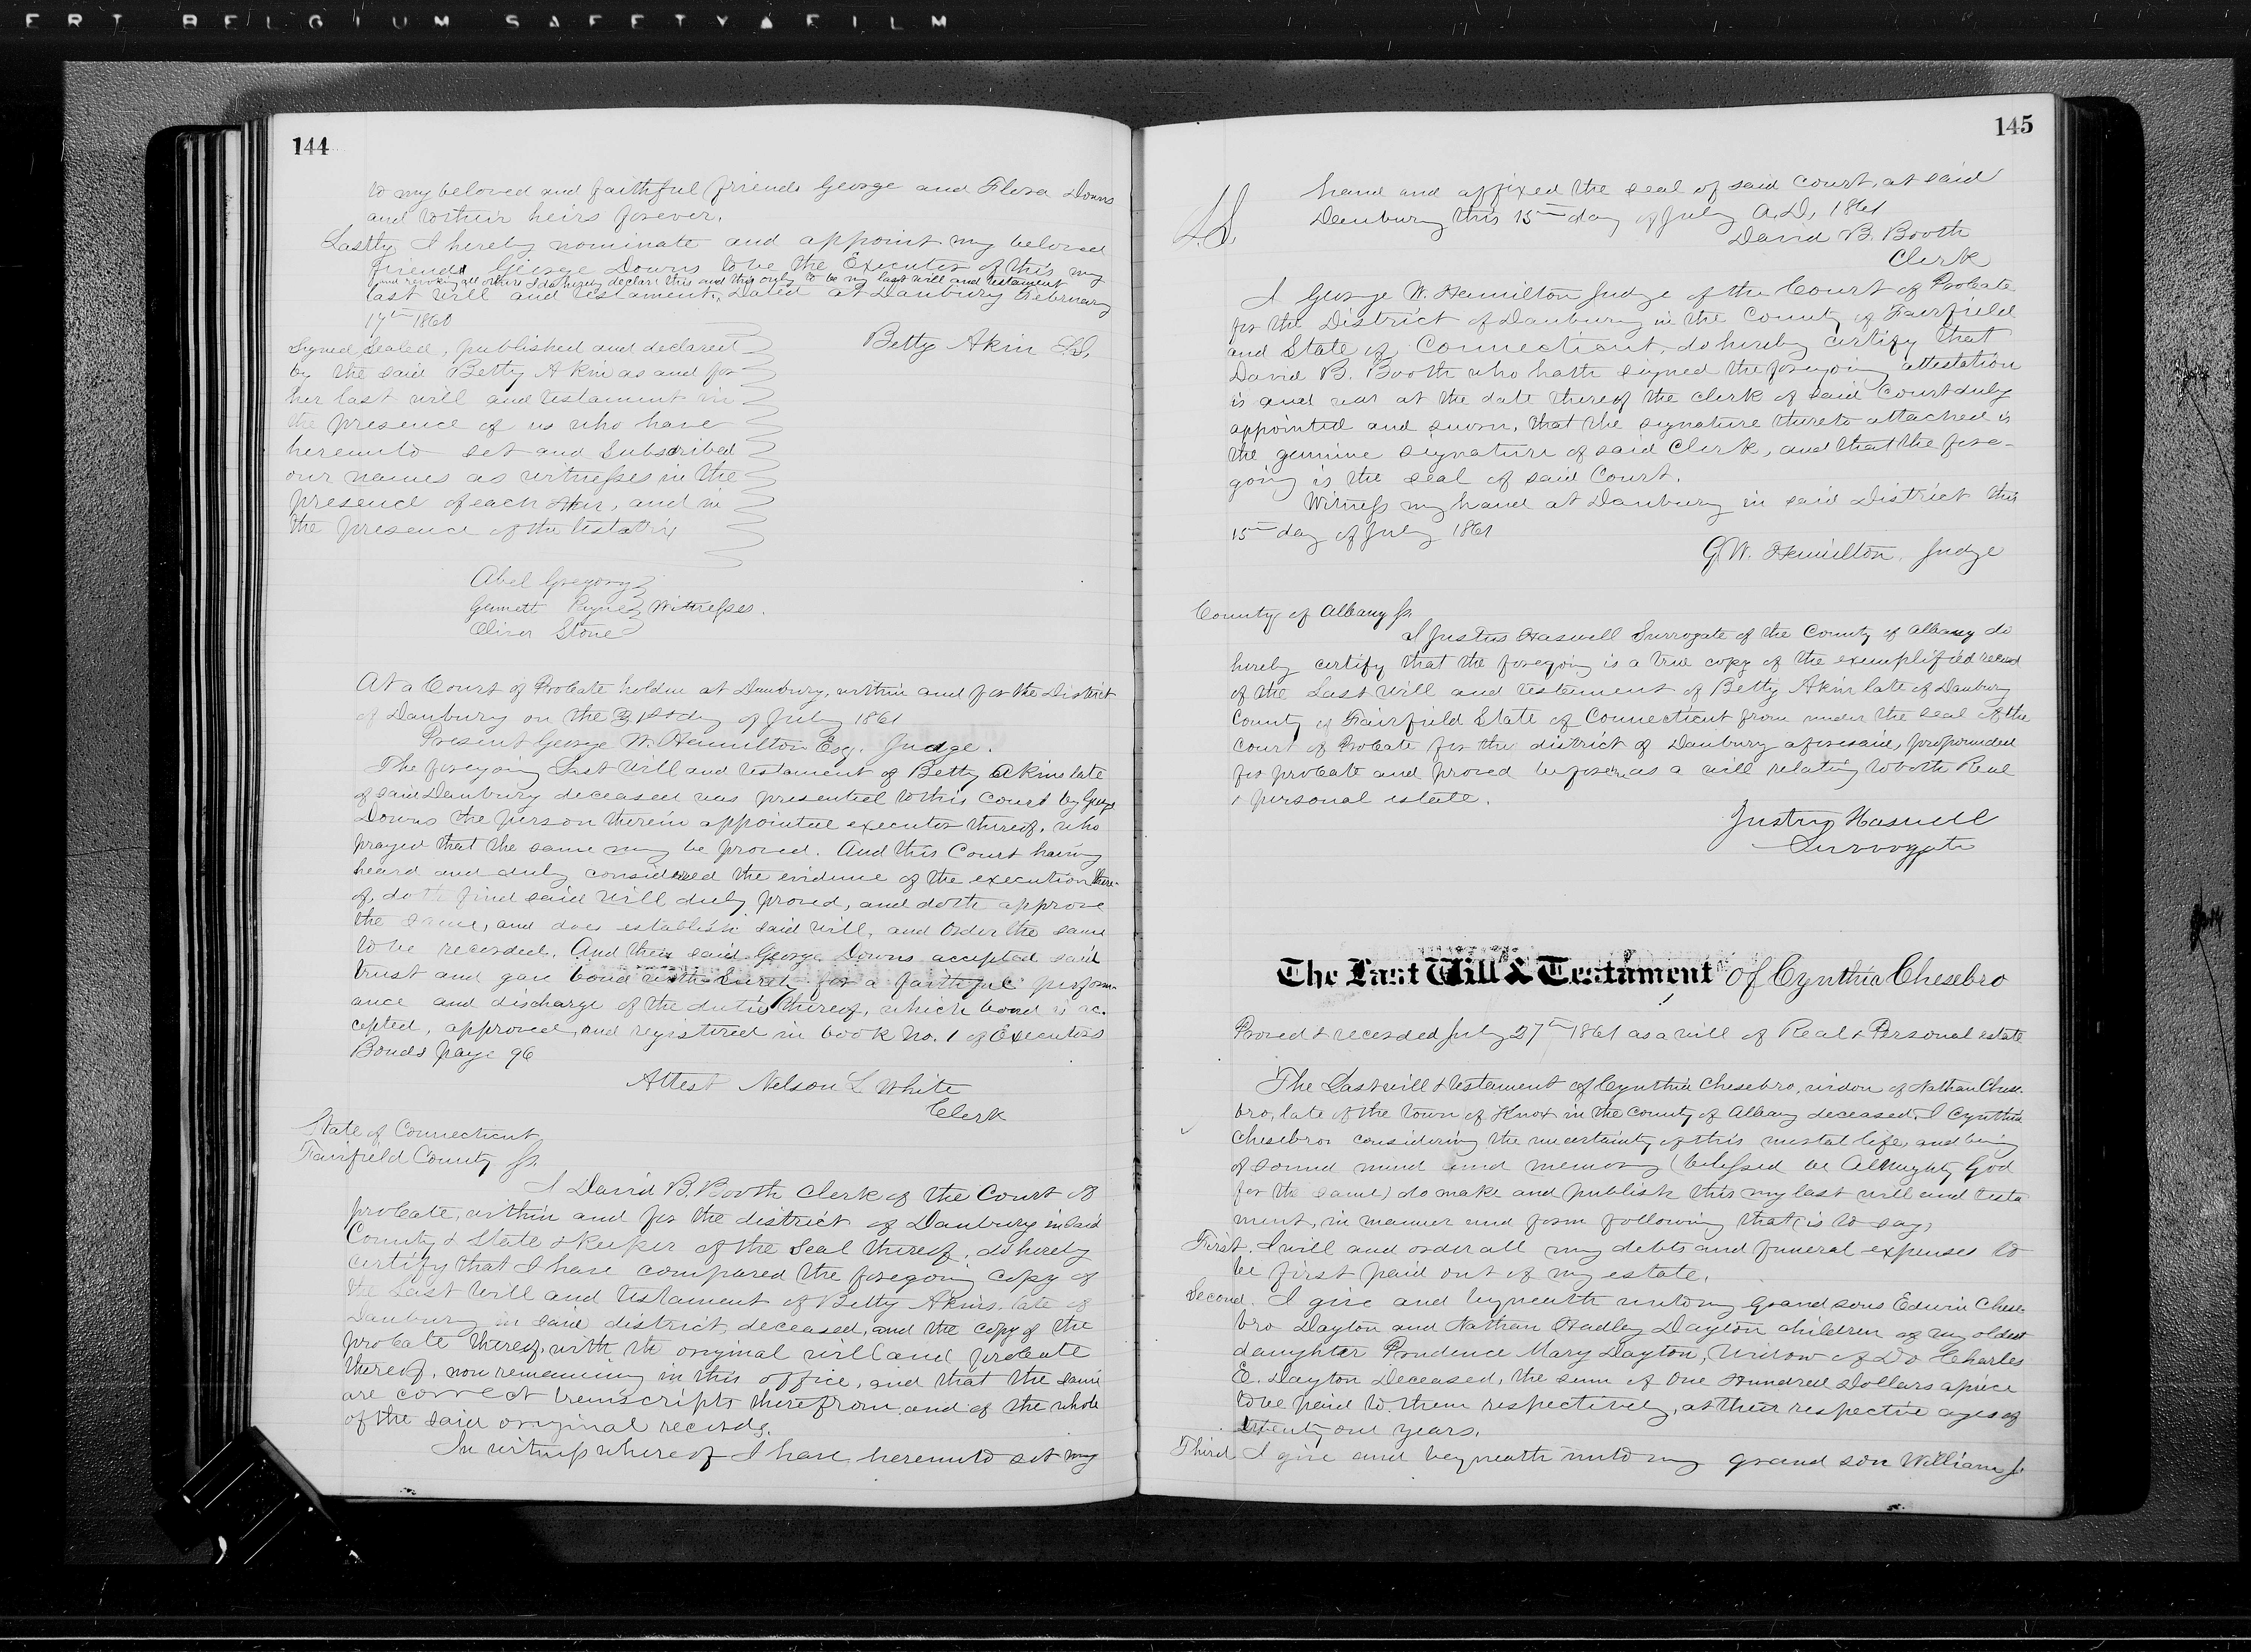 ERT BELGIUM SAFETY FILM
144
to my beloved and faithful friends George and Flora Downs
and to their heirs forever.
Lastly I hereby nominate and appoint my beloved
friend George Downs to be the Executor of this my
and revoking all others I do hereby declare this and this only to be my last will and testament
last will and testament, Dated at Danbury February
17th 1860
Betty Akin L.S.
Signed, Sealed, published and declared
by the said Betty Akin as and for
her last will and testament in
the presence of us who have
hereunto set and Subscribed
our names as witnesses in the
presence of each other, and in
the presence of the testatrix
Abel Gregory
Payne Witnesses.
Oliver Stone
At a Court of Probate holden at Danbury, within and for the District
of Danbury on the 31st day of July 1861
Present George W. Hamilton Esq. Judge.
The foregoing Last Will and testament of Betty Akins late
of said Danbury deceased was presented to this Court by George
Downs the person therein appointed executor thereof, who
prayed that the same may be proved. And this Court having
heard and duly considered the evidence of the execution there-
of, doth find said will duly proved, and doth approve
the same, and does establish said will, and Order the same
to be recorded. And then said George Downs accepted said
trust and gave bond with Surety for a faithful perform-
ance and discharge of the duties thereof, which bond is ac-
cepted, approved, and registered in book No. 1 of Executors
Bonds page 96
Attest Nelson L White
Clerk
State of Connecticut
Fairfield County Ss.
I David B. Booth Clerk of the Court of
probate, within and for the district of Danbury in Said
County & State & Keeper of the Seal thereof, do hereby
certify that I have compared the foregoing copy of
the Last Will and testament of Betty Akins late of
Danbury in said district, deceased, and the copy of the
probate thereof, with the original will and probate
thereof, now remaining in this office, and that the same
are correct transcripts therefrom and of the whole
of the said original records.
In witness whereof I have hereunto set my
145
hand and affixed the seal of said court, at said
L.S. Danbury this 15th day of July A.D. 1861
David B. Booth
Clerk
I George W. Hamilton Judge of the Court of Probate
for the District of Danbury in the County of Fairfield
and State of Connecticut, do hereby certify that
David B. Booth who hath signed the foregoing attestation
is and was at the date thereof the clerk of said Court duly
appointed and sworn, that the signature thereto attached is
the genuine signature of said Clerk, and that the fore-
going is the seal of said Court.
Witness my hand at Danbury in said District this
15th day of July 1861
G. W. Hamilton, Judge
County of Albany Ss.
I Justus Haswell Surrogate of the County of Albany do
hereby certify that the foregoing is a true copy of the exemplified record
of the Last Will and testament of Betty Akin late of Danbury
County of Fairfield State of Connecticut from under the seal of the
Court of Probate for the district of Danbury aforesaid, propounded
for probate and proved before me as a will relating to both Real
& personal estate.
Justus Haswell
Surrogate
The Last Will & Testament of Cynthia Chesebro
Proved & recorded July 27th 1861 as a will of Real & Personal estate
The Last will & testament of Cynthia Chesebro, widow of Nathan Chese-
bro, late of the town of Knox in the county of Albany deceased. I Cynthia
Chesebro considering the uncertainty of this mortal life, and being
of sound mind and memory (blessed be Almighty God
for the same) do make and publish this my last will and testa
ment, in manner and form following that is to say,
First. I will and order all my debts and funeral expenses to
be first paid out of my estate.
Second. I give and bequeath unto my grand sons Edwin Chese-
bro Dayton and Nathan Hadley Dayton children of my oldest
daughter Prudence Mary Dayton, Widow of Dr Charles
E. Dayton Deceased, the sum of One Hundred Dollars apiece
to be paid to them respectively, at their respective ages of
twenty one years.
Third I give and bequeath unto my grand son William J.